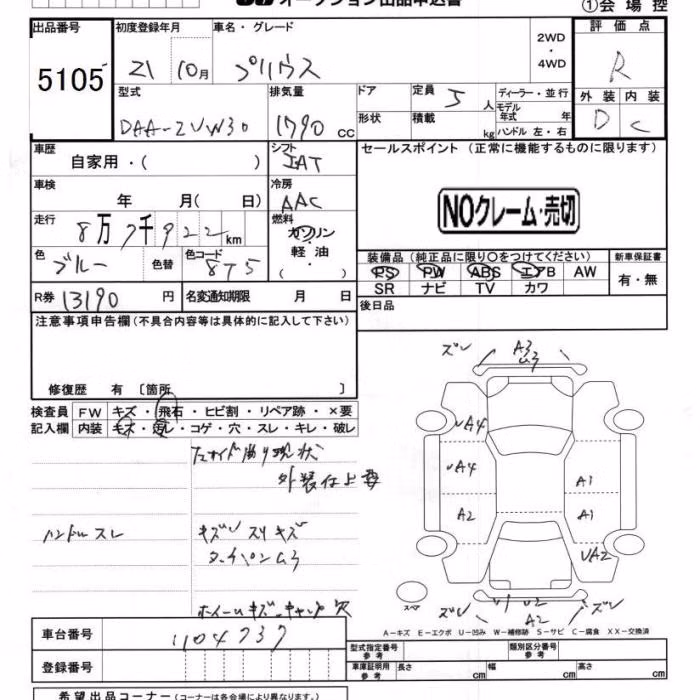 オークション出品申込書
①会場控
出品番号 初度登録年月 車名・グレード 2WD・4WD 評価点
5105 21 10月 プリウス R
型式 排気量 ドア 定員 5人 ディーラー・並行 外装 内装
DAA-ZVW30 1790 cc 形状 積載 kg モデル年式 年 D C
ハンドル 左・右
車歴 シフト セールスポイント(正常に機能するものに限ります)
自家用・( ) IAT
車検 冷房
年 月( 日) AAC NOクレーム・売切
走行 燃料
8万7千922km ガソリン・軽油・( )
色 色替 色コード 装備品(純正品に限り○をつけてください) 新車保証書
ブルー 8T5 PS PW ABS エアB AW 有・無
SR ナビ TV カワ
R券 13190円 名変通知期限 月 日
後日品
注意事項申告欄(不具合内容等は具体的に記入して下さい)
修復歴 有 [箇所 ]
検査員 FW キズ・飛石・ヒビ割・リペア跡・×要
記入欄 内装 キズ・汚レ・コゲ・穴・スレ・キレ・破レ
現状
外装仕上要
ハンドルスレ
キズ スリキズ
ホイールキズ キャップ欠
ズレ A3
UA4
UA4 A3
A2 A1
UA2
スペア
ズレ U2 ズレ
A2
A-キズ E-エクボ U-凹み W-補修跡 S-サビ C-腐食 XX-交換済
車台番号 1104737
登録番号
型式指定番号 参考 類別区分番号 参考
車庫証明用 参考 長さ cm 幅 cm 高さ cm
希望出品コーナー(コーナーは各会場により異なります。)